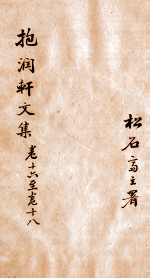 抱润軒文集 卷十六至卷十八
松石斋主署